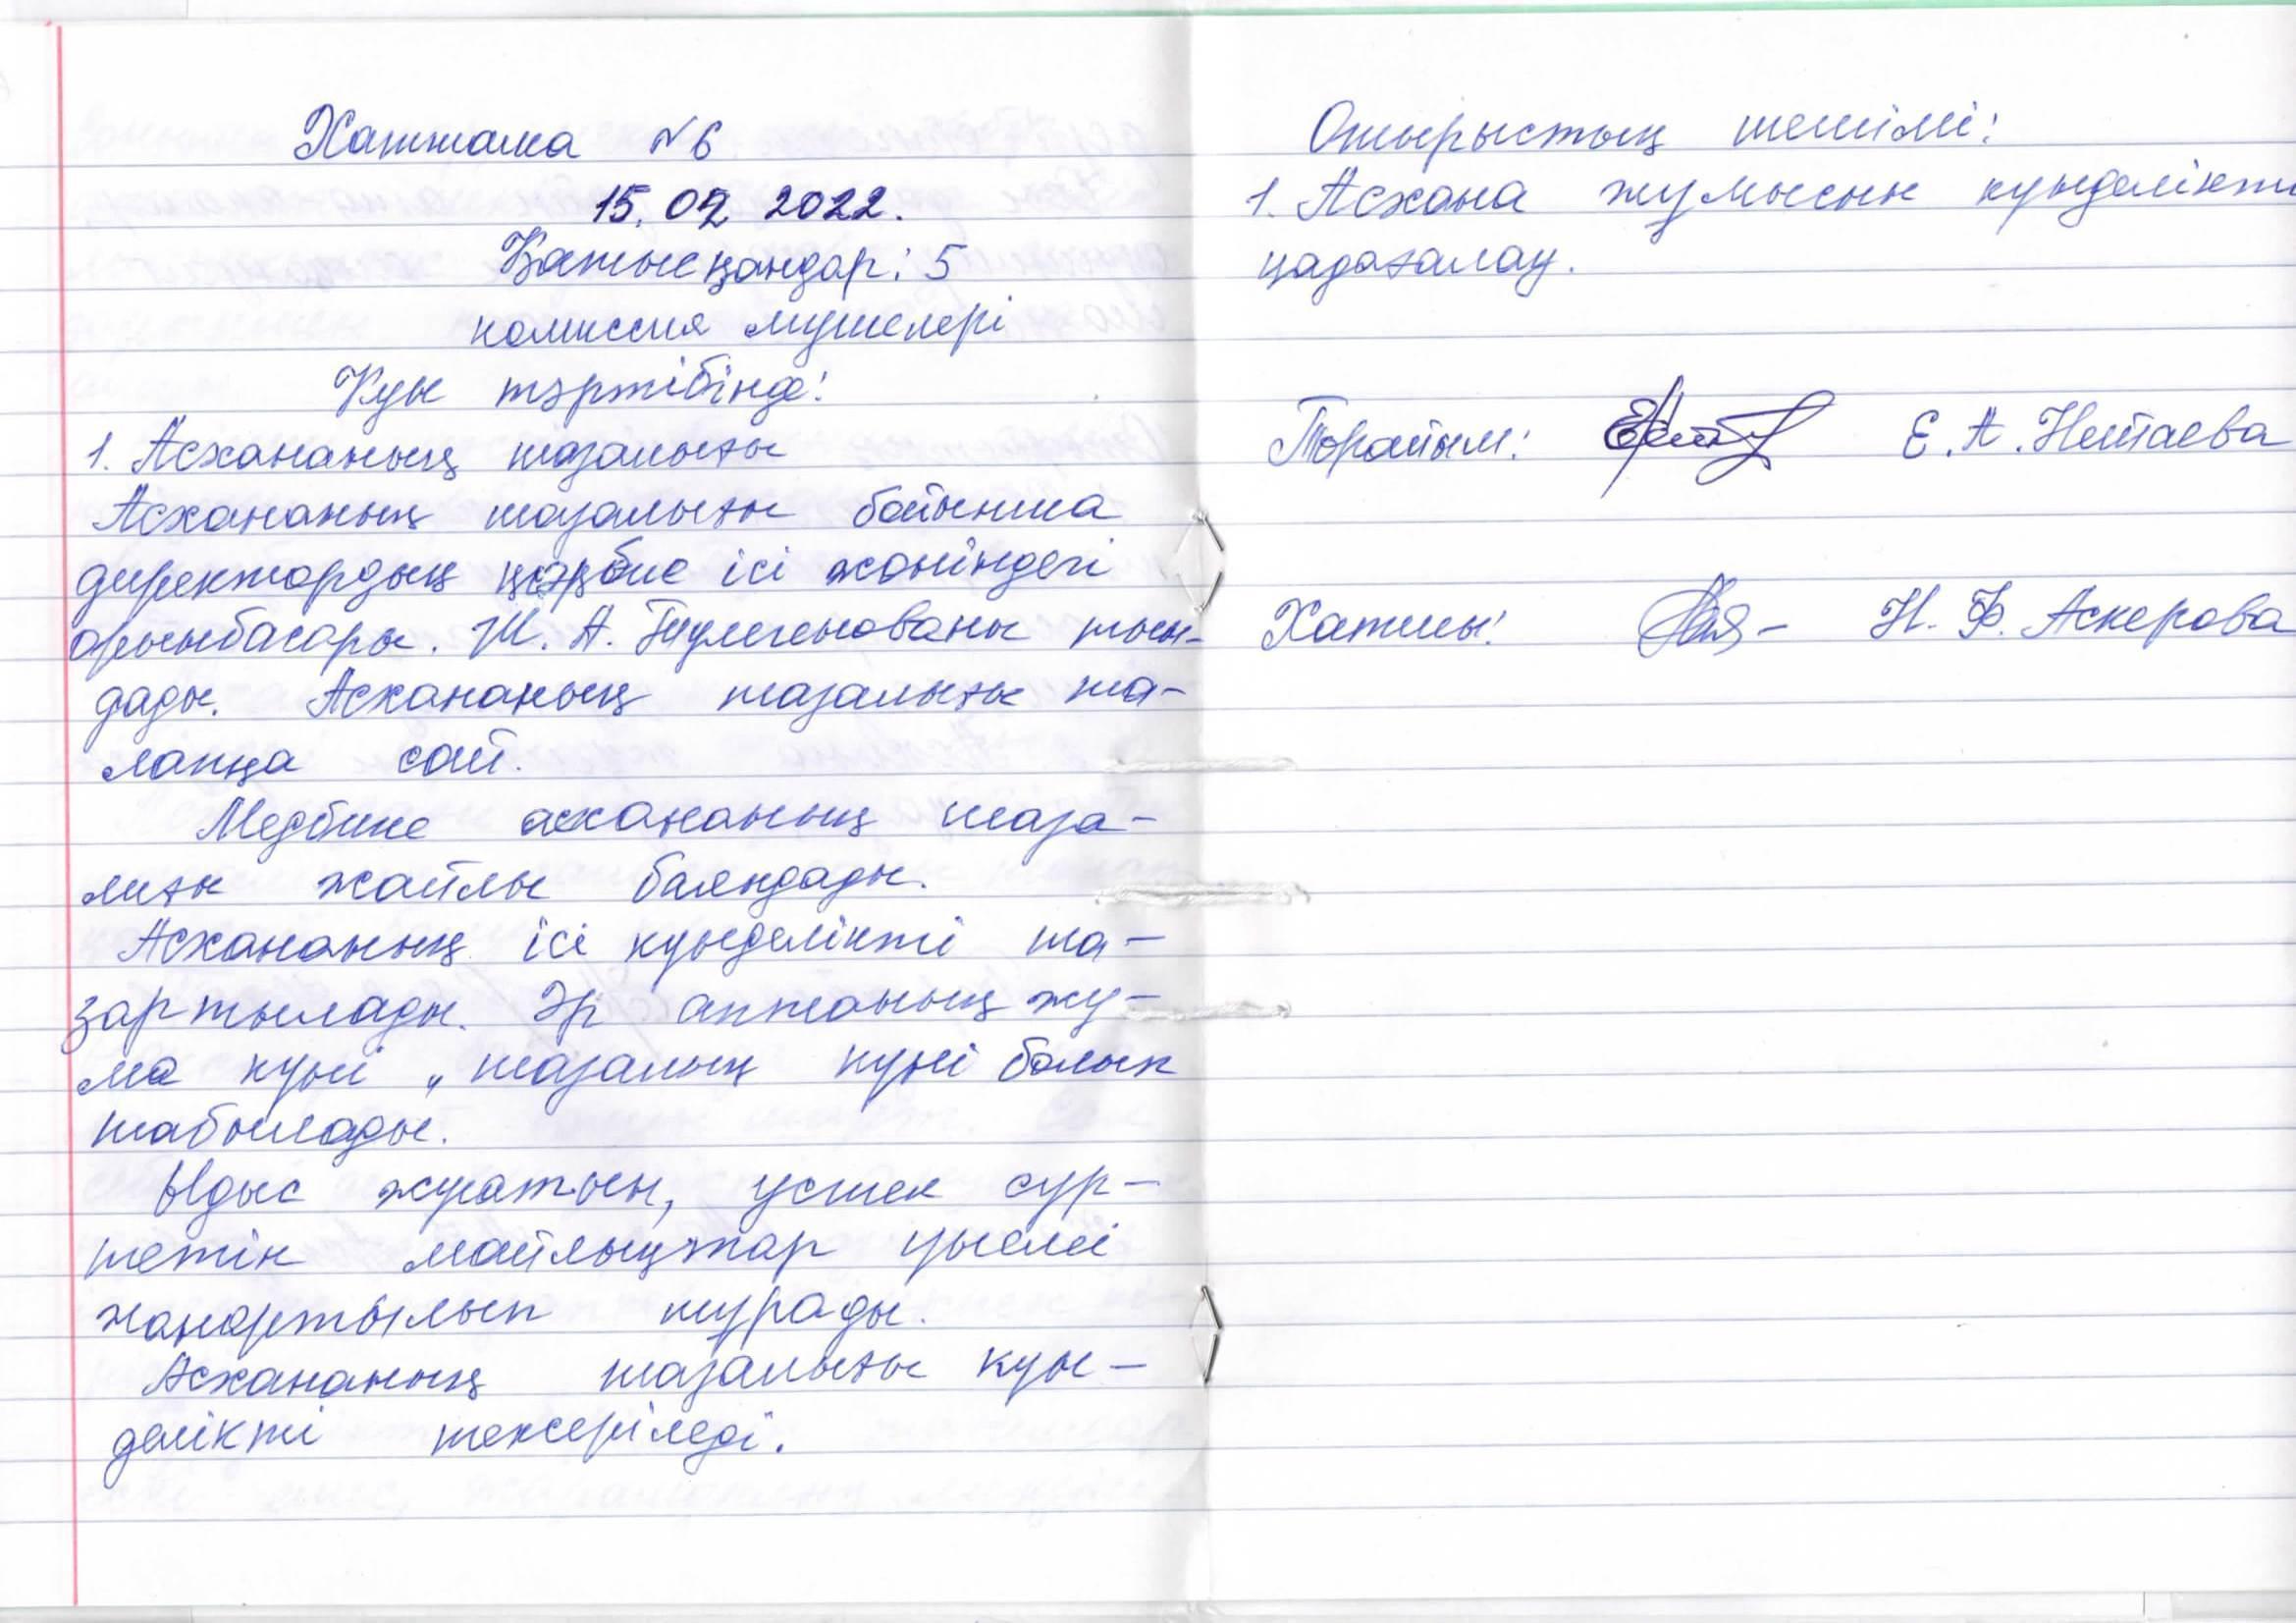 Хаттама №6
15.02 2022.
Қатысқандар: 5
комиссия мүшелері
Күн тәртібінде:
1. Асхананың тазалығы
Асхананың тазалығы бойынша
директордың тәрбие ісі жөніндегі
орынбасары. Ж. А. Тулегенованы тың-
дады. Асхананың тазалығы та-
лапқа сай.
Медбике асхананың таза-
лығы жайлы баяндады.
Асхананың ісі күнделікті та-
зартылады. Әр аптаның жұ-
ма күні „ тазалық күні болып
табылады.
Ыдыс жуатын, үстел сүр-
тетін майлықтар үнемі
жаңартылып тұрады.
Асхананың тазалығы күн-
делікті тексеріледі.
Отырыстың шешімі:
1. Асхана жұмысын күнделікті
қадағалау.
Төрайым: Е. А. Нитаева
Хатшы: Н. Ф. Аскерова